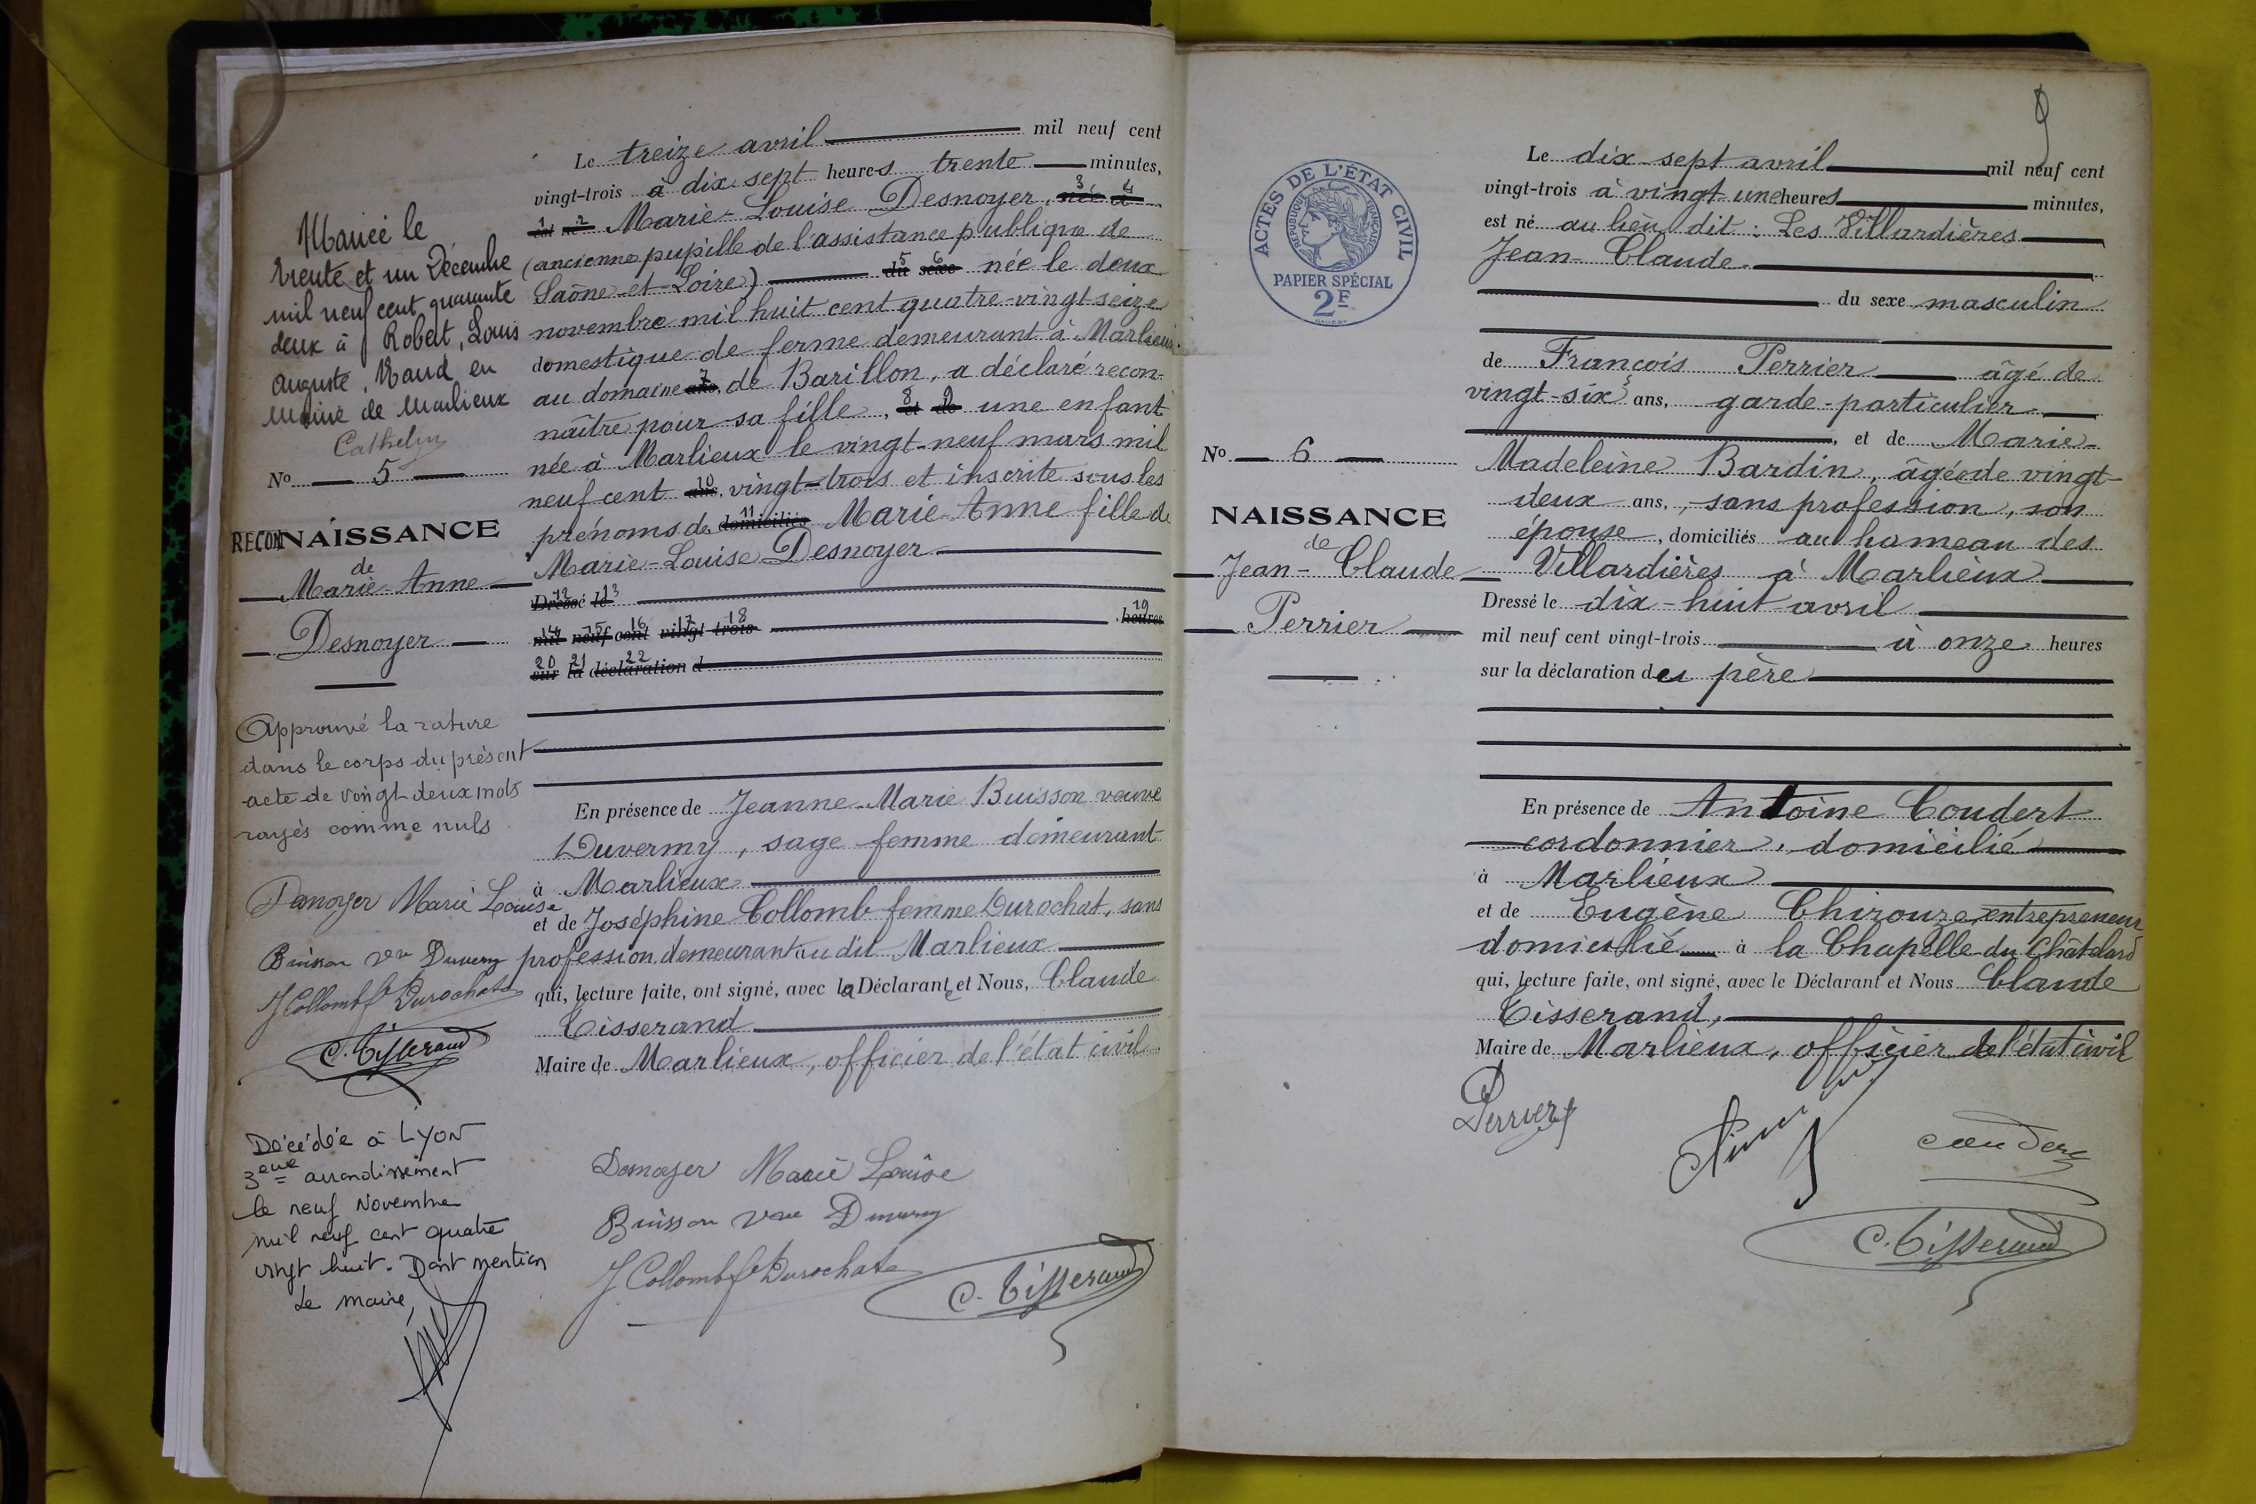 Mariée le
trente et un Décembre
mil neuf cent quarante
deux à Robert, Louis
Auguste, Naud en
Mairie de Marlieux
No 5
RECONNAISSANCE
de
Marie Anne
Desnoyer
Approuvé la rature
dans le corps du présent
acte de vingt deux mots
rayés comme nuls
Desnoyer Marie Louise
Buisson Vve Duvermy
J Collomb f Durochat
C. Tisserand
Décédée à LYON
3eme arrondissement
le neuf Novembre
mil neuf cent quatre
vingt huit. Dont mention
Le maire,
Le treize avril mil neuf cent
vingt-trois à dix sept heures trente minutes,
est né Marie-Louise Desnoyer, née à
(ancienne pupille de l'assistance publique de
Saône-et-Loire) du sexe née le deux
novembre mil huit cent quatre-vingt seize
domestique de ferme demeurant à Marlieux
au domaine ans, de Barillon, a déclaré recon-
naître pour sa fille, et de une enfant
née à Marlieux le vingt-neuf mars mil
neuf cent ans, vingt-trois et inscrite sous les
prénoms de domiciliés Marie-Anne fille de
Marie-Louise Desnoyer
Dressé le
mil neuf cent vingt-trois heures
sur la déclaration d
En présence de Jeanne-Marie Buisson veuve
Duvermy, sage femme demeurant
à Marlieux
et de Joséphine Collomb femme Durochat, sans
profession, demeurant au dit Marlieux
qui, lecture faite, ont signé, avec la Déclarante et Nous, Claude
Tisserand
Maire de Marlieux, officier de l'état civil
Desnoyer Marie Louise
Buisson Vve Duvermy
J Collomb f Durochat
C. Tisserand
9
ACTES DE L'ÉTAT CIVIL
RÉPUBLIQUE FRANÇAISE
PAPIER SPÉCIAL
2F
No 6
NAISSANCE
de
Jean-Claude
Perrier
Le dix-sept avril mil neuf cent
vingt-trois à vingt une heures minutes,
est né au lieu dit : Les Villardières
Jean-Claude
du sexe masculin
de François Perrier âgé de
vingt-six ans, garde-particulier
, et de Marie-
Madeleine Bardin, âgée de vingt-
deux ans, sans profession, son
épouse, domiciliés au hameau des
Villardières à Marlieux
Dressé le dix-huit avril
mil neuf cent vingt-trois à onze heures
sur la déclaration du père
En présence de Antoine Coudert
cordonnier, domicilié
à Marlieux
et de Eugène Chirouze, entrepreneur
domicilié à la Chapelle-du-Châtelard
qui, lecture faite, ont signé, avec le Déclarant et Nous Claude
Tisserand,
Maire de Marlieux, officier de l'état civil
Perrier f
Coudert
C. Tisserand